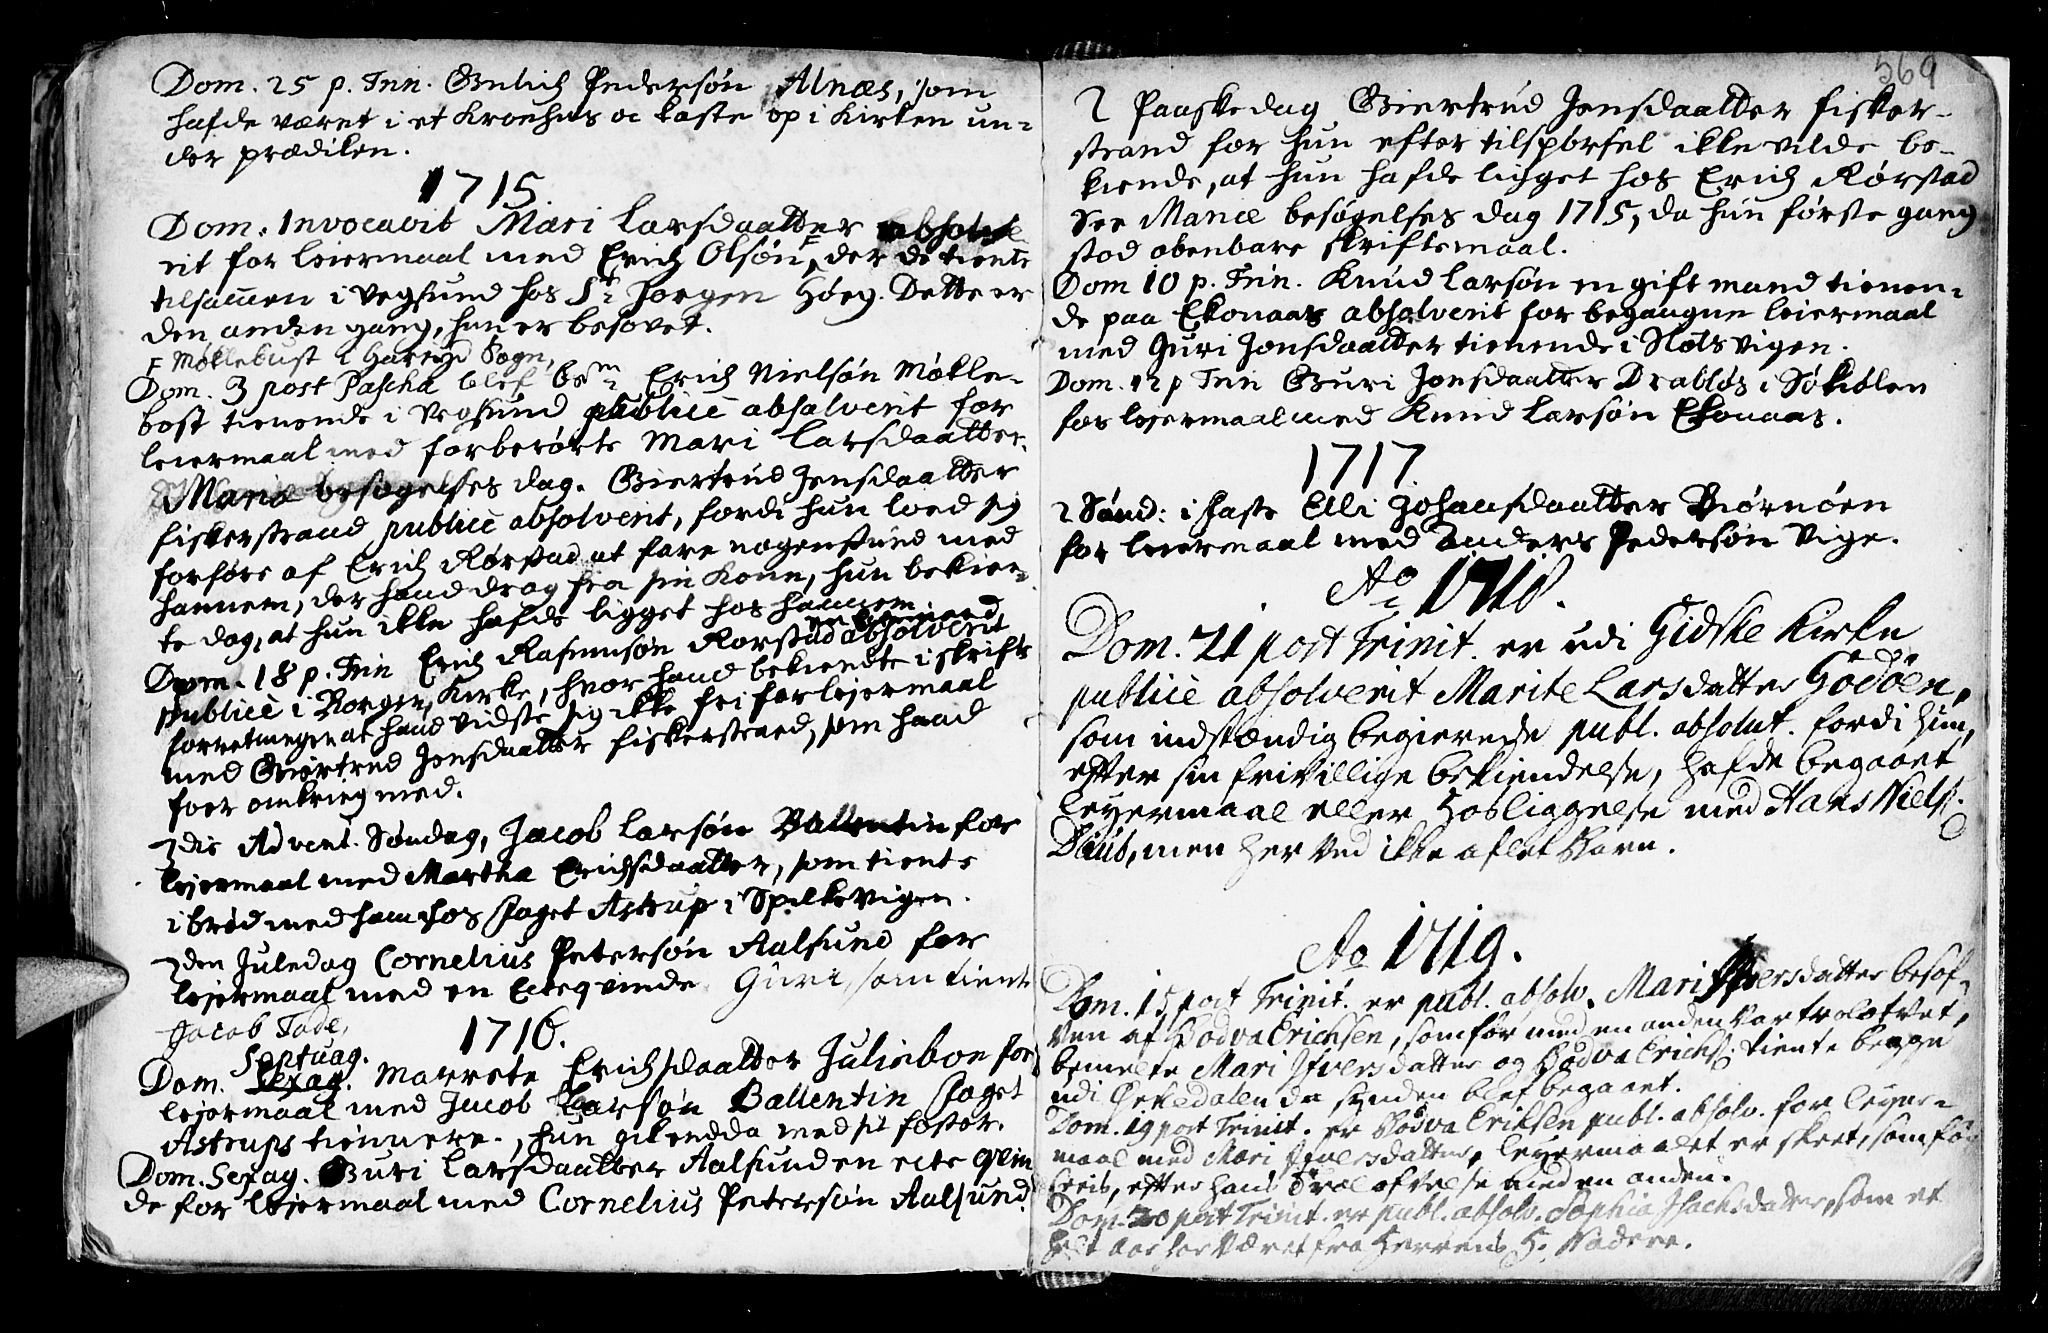 Dom. 25 p. Trin. Gulich Pedersøn Alnæs, som
hafde været i et Kroehus oc kaste op i Kirken un-
der prædiken.
1715
Dom. Invocavit Mari Larsdaatter absolve
rit for leiermaal med Erich Olsøn F, der de tiente
tilsamen i Vegsund hos Sr Jorgen Høeg. Dette er
den anden gang, hun er besovet.
F Møklebust i Harejd Sogn,
Dom. 3 post Pascha blef bem Erich Nielsøn Møkle-
bost tienende i Vegsund publicè absolverit for
leiermaal med forberørte Mari Larsdaatter.
Mariæ besøgelses dag. Giertrud Jensdaatter
fiskerstrand publicè absolverit, fordi hun loed sig
forføre af Erich Rørstad at fare nogen stund med
hannem, der hand drog fra sin Kone, hun bekien-
te dog, at hun ikke hafde ligget hos hannem.
en Egtemand
Dom. 18 p. Trin Erich Rasmusøn Rorstad absolverit
publicè i Borgen Kirke, hvor hand bekiendte i skrifte
forretningen at hand vidste sig ikke fri for lejermaal
med Giertrud Jensdaatter fiskerstrand, som hand
foer omkring med.
2die Advent. Søndag, Jacob Larsøn Ballentin for
lejermaal med Martha Erichsdaatter, som tiente
i brød med ham hos foget Astrup i Spilkevigen.
2den Juledag Cornelius Petersøn Aalsund for
lejermaal med en Encqvinde Guri, som tient
Jacob Tode,
1716.
Septuag.
Dom. Sexag. Marrete Erichsdaatter Juliebøn for
lejermaal med Jacob Larsøn Ballentin foget
Astrups tiennere., hun gik endda med sit foster.
Dom. Sexag. Guri Larsdaatter Aalsund en Encqvin
de for lejermaal med Cornelius Petersøn Aalsund.
569
2 Paaskedag Giertrud Jensdaatter fisker-
strand for hun efter tilspørsel ikke vilde be-
kiende, at hun hafde ligget hos Erich Rørstad
See Mariæ besøgelses dag 1715, da hun første gang
stod obenbare skriftemaal.
Dom 10 p. Trin. Knud Larsøn en gift mand tienen-
de paa Ekonaas absolverit for begangne leiermaal
med Guri Jonsdaatter tienende i Slotsvigen.
Dom. 12 p Trin Guri Jonsdaatter Drabløs i Søkiblen
for lejermaal med Knud Larsøn Ekonaas.
1717
2 Sønd: i faste Elli Johansdaatter Biørnøen
for leiermaal med Anders Pedersøn Vige.
Ao 1718.
Dom. 21 post Trinit. er udi Gidske Kirke
publicè absolverit Marite Larsdatter Godøen,
som indstændig begierede publ. absolut. fordi hun,
efter sin frivillige bekiendelse, hafde begaaet
leyermaal eller Hosliggelse med Hans Niels.
Daub, men her ved ikke aflet Barn.
Ao 1719.
Dom. 15 post Trinit. er publ. absolv. Mari Ifversdatter besof-
ven af Bodva Erichsen, som før med en anden var trolovet,
bemelte Mari Ifversdatter og Bodva Erichs. tiente begge
udi Ørkedalen da synden blef begaaet.
Dom. 19 post Trinit. er Bødva Eriksen publ. absolv. for leyer-
maal med Mari Ifversdatter, leyermaalet er skeet, som før
skris, efter hans Trolofvelse med en anden.
Dom. 20 post Trinit. er publ. absolv. Sophia Isachsdatter, som et
helt aar har været fra Herrens H. Nadere.